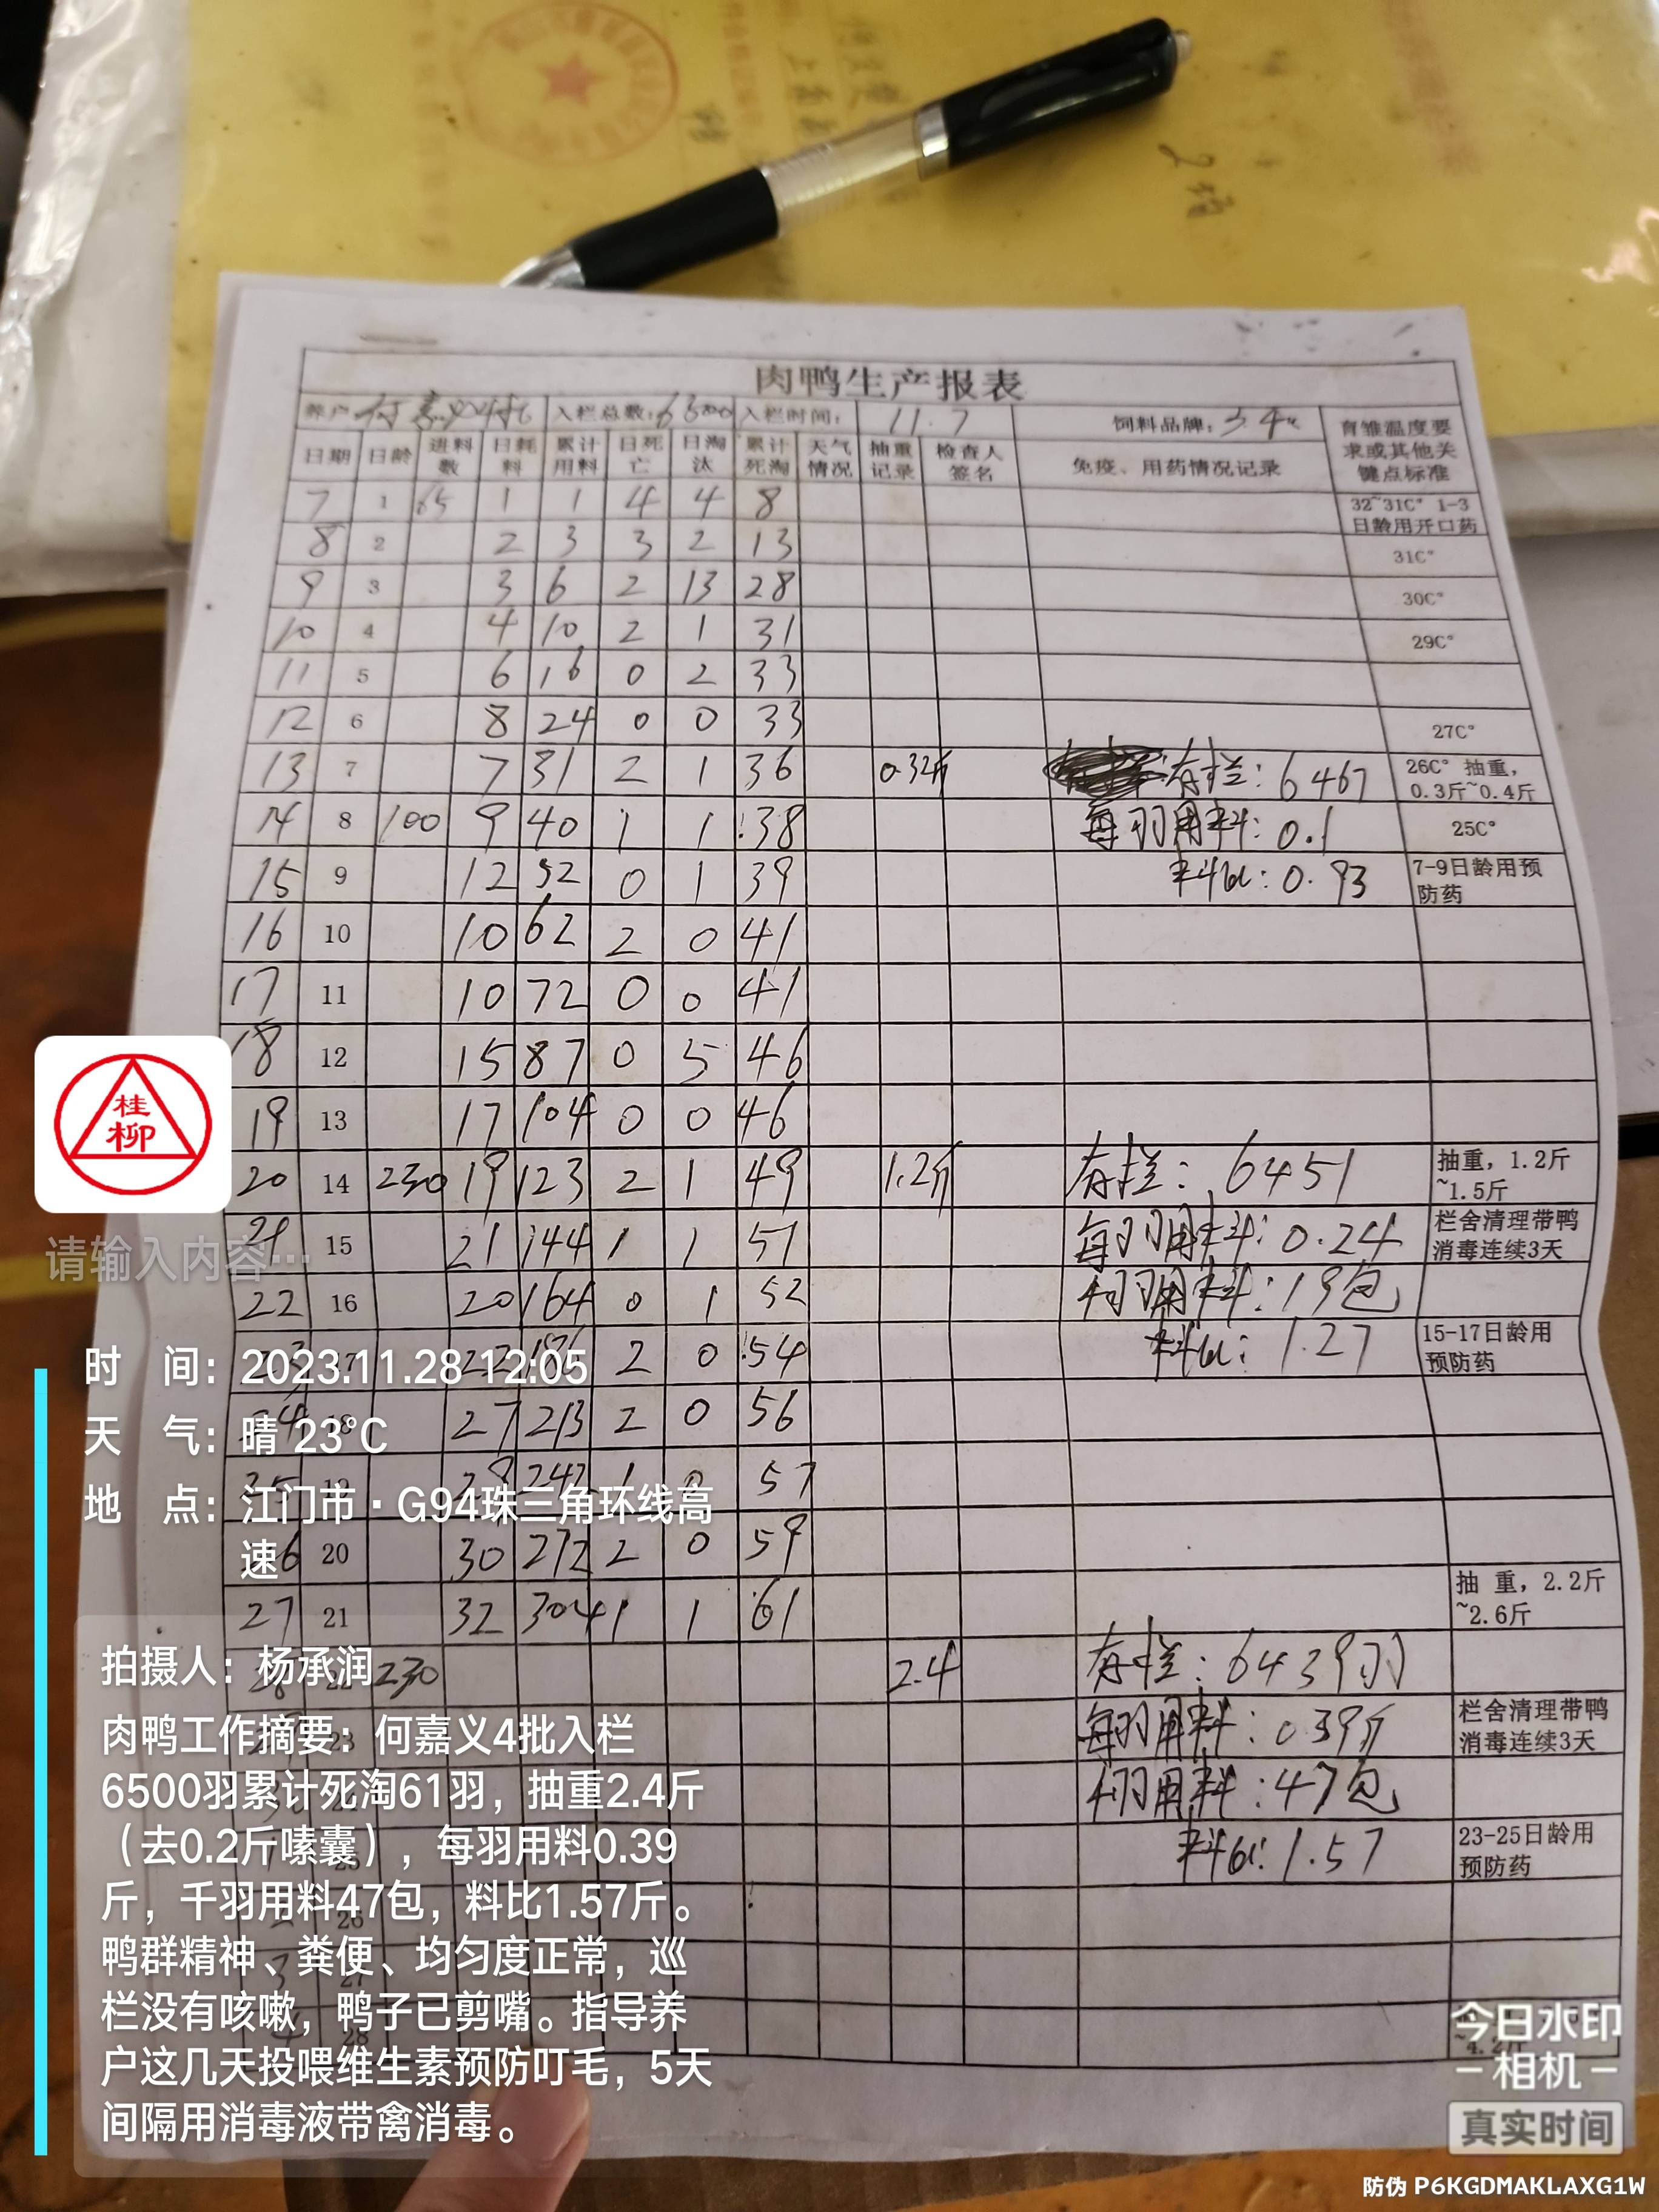 2 棚
肉鸭生产报表
养户 何嘉义4批 入栏总数:6500 入栏时间: 11.7 饲料品牌: 育雏温度要求或其他关键点标准
日期 日龄 进料数 日耗料 累计用料 日死亡 日淘汰 累计死淘 天气情况 抽重记录 检查人签名 免疫、用药情况记录
7 1 65 1 1 4 4 8 32~31C° 1-3日龄用开口药
8 2 2 3 3 2 13 31C°
9 3 3 6 2 13 28 30C°
10 4 4 10 2 1 31 29C°
11 5 6 16 0 2 33
12 6 8 24 0 0 33 27C°
13 7 7 31 2 1 36 0.32斤 存栏: 6467 26C° 抽重,0.3斤~0.4斤
14 8 100 9 40 1 1 38 每羽用料: 0.1 25C°
15 9 12 52 0 1 39 料比: 0.93 7-9日龄用预防药
16 10 10 62 2 0 41
17 11 10 72 0 0 41
18 12 15 87 0 5 46
19 13 17 104 0 0 46
20 14 230 19 123 2 1 49 1.2斤 存栏: 6451 抽重,1.2斤~1.5斤
21 15 21 144 1 1 51 每羽用料: 0.24 栏舍清理带鸭消毒连续3天
22 16 20 164 0 1 52 千羽用料: 19包
17 22 186 2 0 54 料比: 1.27 15-17日龄用预防药
27 213 2 0 56
25 19 242 1 0 57
20 30 272 2 0 59
27 21 32 304 1 1 61 抽 重,2.2斤~2.6斤
230 2.4 存栏: 6439羽
23 每羽用料: 0.39斤 栏舍清理带鸭消毒连续3天
千羽用料: 47包
25 料比: 1.57 23-25日龄用预防药
26
27
28 ~4.2斤
桂
柳
请输入内容…
时 间: 2023.11.28 12:05
天 气: 晴 23℃
地 点: 江门市·G94珠三角环线高
速
拍摄人: 杨承润
肉鸭工作摘要: 何嘉义4批入栏
6500羽累计死淘61羽，抽重2.4斤
（去0.2斤嗉囊），每羽用料0.39
斤，千羽用料47包，料比1.57斤。
鸭群精神、粪便、均匀度正常，巡
栏没有咳嗽，鸭子已剪嘴。指导养
户这几天投喂维生素预防叮毛，5天
间隔用消毒液带禽消毒。
今日水印
相机
真实时间
防伪 P6KGDMAKLAXG1W